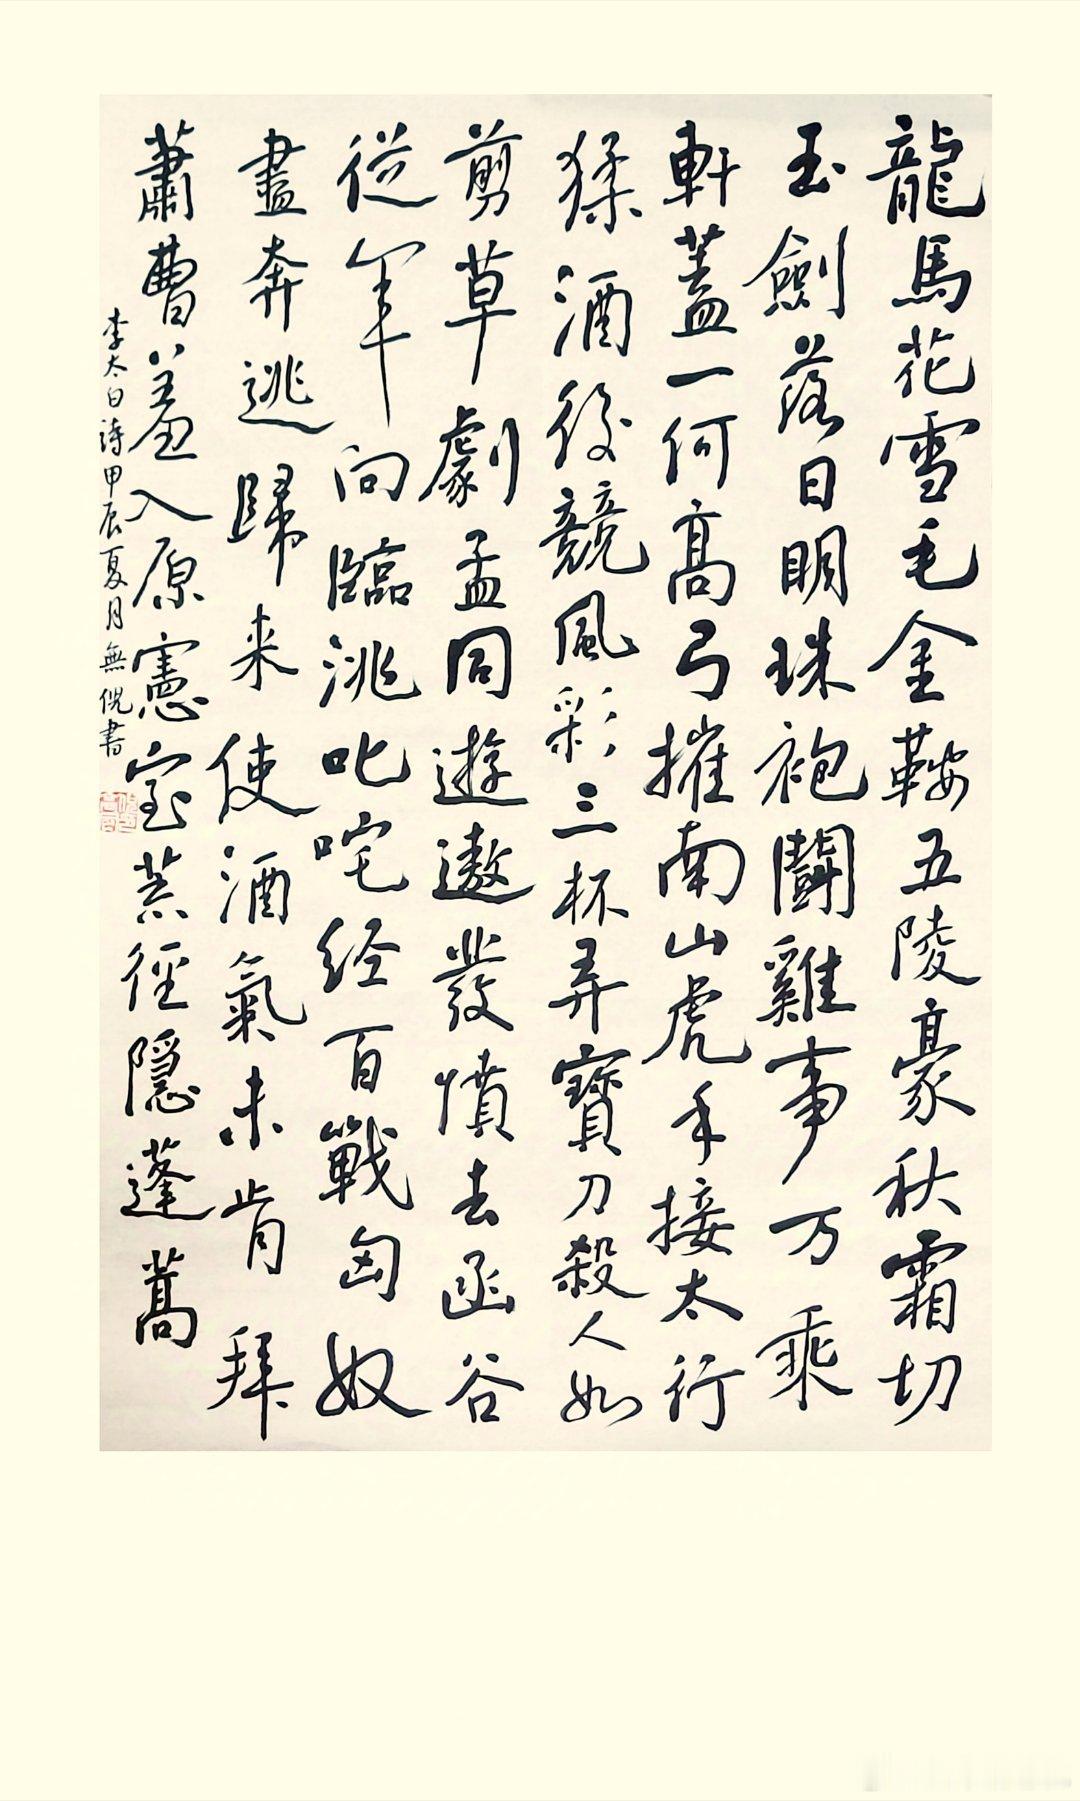 龍馬花雪毛金鞍五陵豪秋霜切
玉劍落日明珠袍鬪雞事万乘
軒蓋一何高弓摧南山虎手接太行
猱酒後競風彩三杯弄寶刀殺人如
剪草劇孟同遊遨發憤去函谷
從軍向臨洮叱咤经百戰匈奴
盡奔逃歸来使酒氣未肯拜
蕭曹羞入原憲室荒徑隐蓬蒿
李太白詩甲辰夏月無倪書